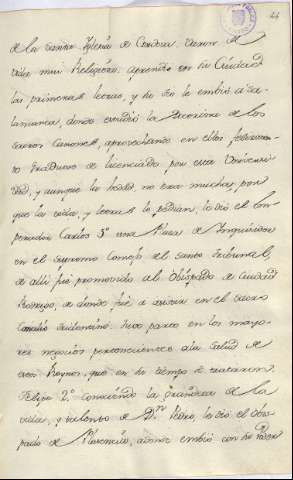 de la santa Iglesia de Cordova. Varon de
vida mui Religiosa. aprendio en su Ciudad
las primeras letras, y su tio le embió a Sa-
lamanca, donde estudió la Doctrina de los
Sacros Canones, aprovechando en ellos
Graduose de licenciado por esta Universi-
dad, y aunque la hedad no era mucha, por
que la vida, y letras lo pedian, le dió el Em-
perador Carlos 5º una Plaza de Inquisidor
en el Supremo Consejo del Santo Tribunal,
de allí fué promovido al Obispado de Ciudad
Rodrigo, de donde fué a asistir en el Sacro
Concilio tuvo parte en los mayo-
res negocios pertenecientes a la Salud de
estos Reynos, que en su tiempo se trataron.
Felipe 2º conociendo la grandeza de la
vida, y talentos de Dn. Pedro, le dió el obis-
pado de Plasencia, adonde embió con su Poder